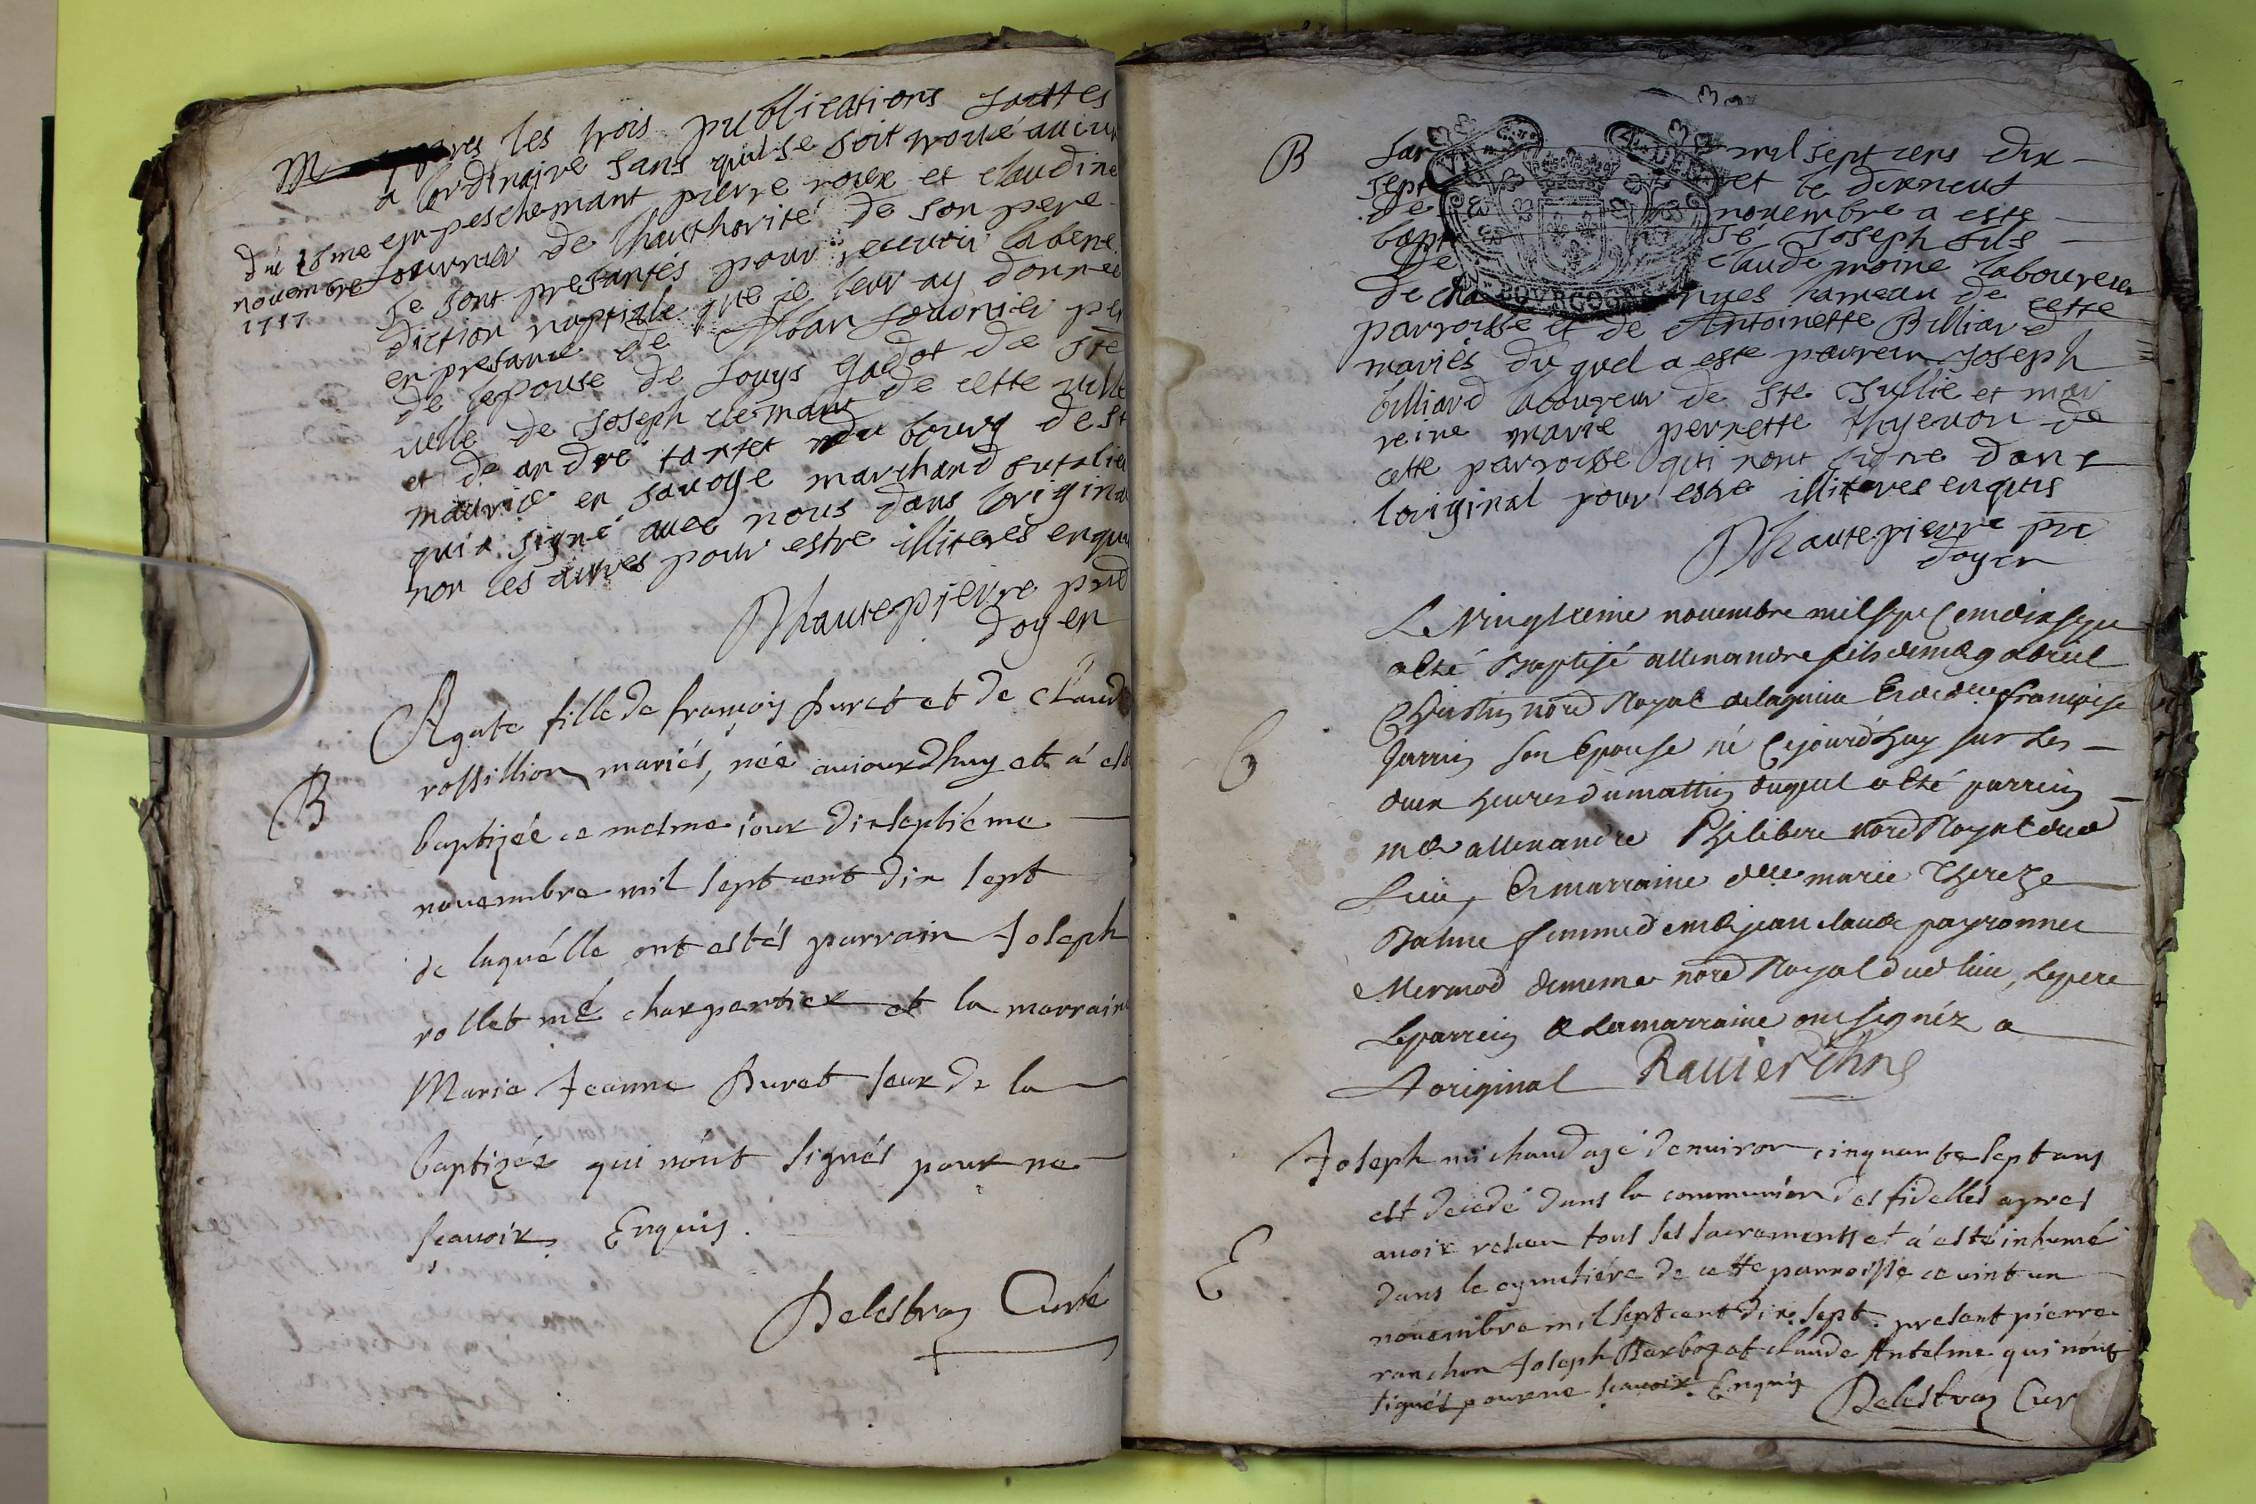 M apres les trois publications faittes
a lordinaire sans quil se soit trouvé aucun
empeschemant pierre roux et claudine
du 16me
novembre
1717
fournier de lhauthorité de son pere
se sont presantés pour recevoir la bene
diction nuptiale que je leur ay donnée
en presance de fournier pere
de lepouse de Louys gadot de ste
Julle de Joseph clemant de cette ville
et de andré tartet du bourg de st
maurice en savoye marchand
qui a signé avec nous dans loriginal
non les autres pour estre illiterés enquis
Dhautepierre
doyen
B
Agate fille de françois Puret et de Claud
rossillion mariés, née auiourdhuy et à esté
baptizée ce mesme iour dixseptiéme
novembre mil sept cent dix sept
de laquélle ont estés parrain Joseph
rollet mé charpentier et la marraine
Marie Jeanne Puret seur de la
baptizée qui nónt signés pour ne
sçavoir. Enquis.
Delestraz Curé
B
Lan mil sept cens dix
sept et le dixneuf
de novembre a esté
bapti sé Joseph fils
de claude moine laboureur
de cha nues hameau de cette
parroisse et de Antoinette Billiard
mariés du quel a esté parrein Joseph
billiard laboureur de ste Jullie et mar
reine marie pernette thyevon de
cette parroisse qui nont signé dans
loriginal pour estre illiteres enquis
Dhautepierre
doyen
B
Le vingtieme novembre mil sept cent dix sept
a été Baptisé allexandre fils de me gabriel
Chrestin nore Royal de lagnieu Et de dlle françoise
Jarrin son Epouse né cejourdhuy sur les
deux heures du mattin duquel a été parrein
me allexandre Philibert nore Royal dud
Lieu, Et marraine dlle marie Thereze
Balme femme de me jean claude payronnet
Mermod de meme nore Royal dud lieu, Lepere
Leparrein & Lamarraine ont signéz a
Loriginal Ravier
E
Joseph michaud agé denuiron cinquante sept ans
est decedé dans la communion des fidelles apres
auoir receu tous ses sacrements et à esté inhumé
dans le cymetiére de cette parroisse ce vint un
nouembre mil sept cent dix sept. presant pierre
ranchon Joseph Barboz et claude Antelme qui nónt
signés pour ne sçavoir. Enquis Delestraz Cur